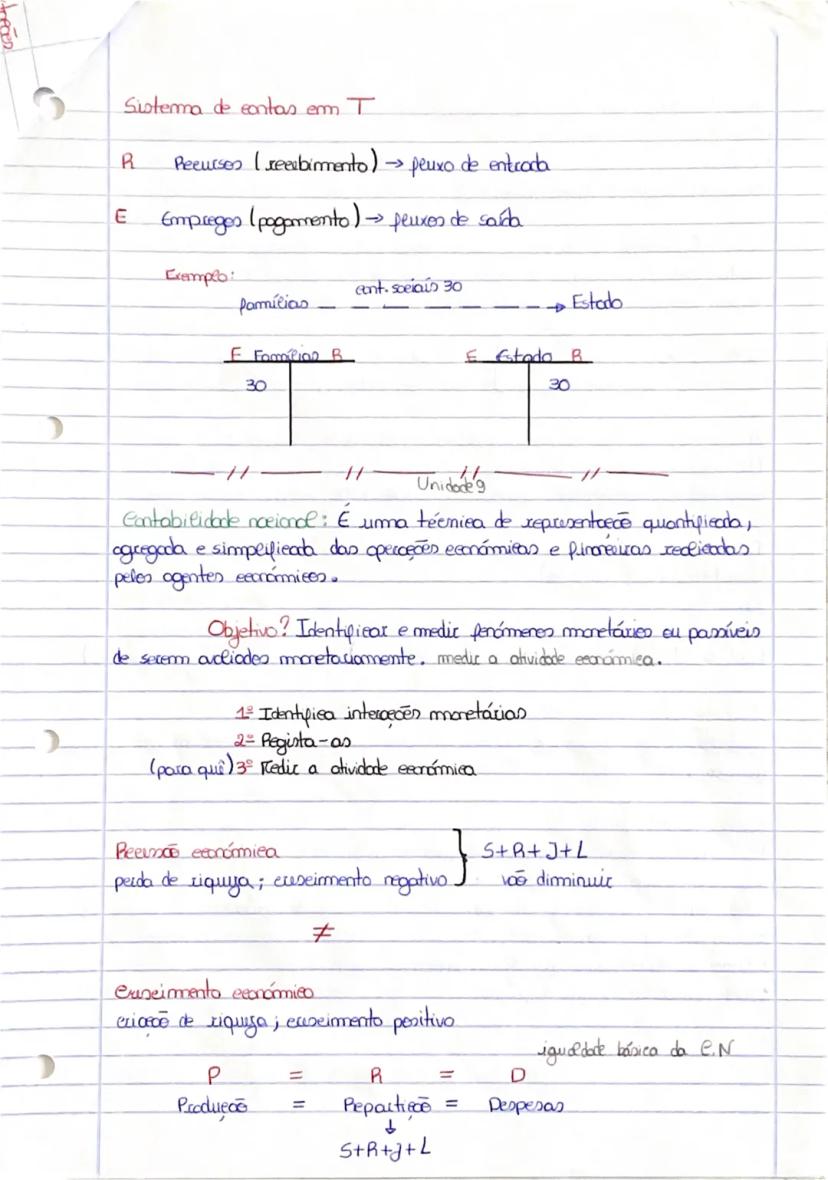 Sistema de contas em T
R Recursos (recebimento) → fluxo de entrada
E Empregos (pagamento) → fluxos de saída
Exemplo:
cont. sociais 30
famílias → Estado
E Famílias R
E Estado R
30
30
Unidade 9
Contabilidade nacional: É uma técnica de representação quantificada,
agregada e simplificada das operações económicas e financeiras realizadas
pelos agentes económicos.
Objetivo? Identificar e medir fenómenos monetários ou passíveis
de serem avaliados monetariamente. medir a atividade económica.
1º Identifica interações monetárias
2º Regista-as
(para quê) 3º Medir a atividade económica
Recessão económica } S+R+J+L
perda de riqueza; crescimento negativo vão diminuir
≠
Crescimento económico
criação de riqueza; crescimento positivo
igualdade básica da C.N
P = R = D
Produção = Repartição = Despesas
↓
S+R+J+L